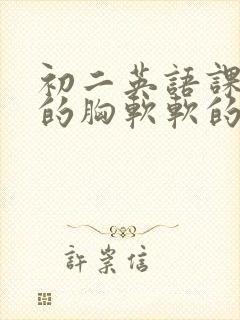 初二英語課
的胸軟軟的
許崇信